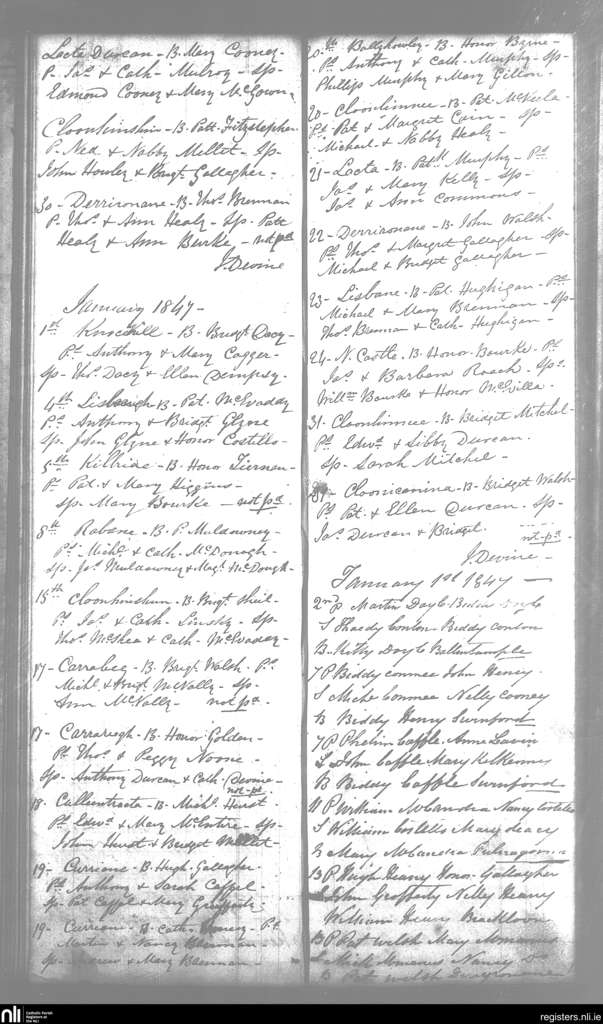 Lecta Durcan - B. Mary Cooney -
P. Jas & Cath - Mulroy - Sp -
Edmond Cooney & Mary McGowan
Cloonkinshin - B. Patt. Fitzstephen
P. Ned & Nabby Mellet - Sp -
John Howley & Brigt Gallagher -
30 - Derrironane - B. Thos Brennan
P. Thos & Ann Healy - Sp. Patt
Healy & Ann Burke - not pd
J. Devine
January 1847 -
1st Knockill - B. Bridgt Dacy -
Pts Anthony & Mary Cogger -
Sp - Thos Dacy & Ellen Dempsey -
4th B. Pat. McEvaddy
Pts Anthony & Bridgt Glyne
Sp. John Glyne & Honor Costillo -
5th Killride - B. Honor Tiernan -
Ps Pat. & Mary Higgins -
Sp. Mary Bourke - not pd
8th Rabane - B. P. Muldowney -
Pts Michl & Cath. McDonogh -
Sp. Jas Muldowney & Magt McDongh -
15th Cloonkinshun - B. Brigt Sheil -
Ps Jas & Cath - Sp -
Thos McShea & Cath - McEvaddy -
17 - Carrabeg - B. Brigt Walsh - Ps
Michl & Brigt McNally - Sp -
Ann McNally - not pd -
17 - Carrareagh - B. Honor Golden -
Ps Thos & Peggy Noone -
Sp - Anthony Durcan & Cath. Devine -
not-pd
18. Cullentraota - B. Michl Hurst -
Ps Edwd & Mary McEntire - Sp -
John Hurst & Bridget Mellet -
19 - Curriane - B. Hugh. Gallagher
Ps Anthony & Sarah Caffel -
Sp. Pat Caffel & Mary
19 - Curriean - B. Cath - Ps
Martin & Nancy Brennan -
Sp - Andrew & Mary Brennan -
20th Ballyhowley - B. Honor Byrne -
Ps Anthony & Cath - Murphy - Sp -
Phillips Murphy & Mary Gillon -
20 - Cloonlimnee - B. Pat. McKeela -
Ps Pat & Margret Cain - Sp -
Michael & Nabby Healy -
21 - Lecta - B. Patk Murphy - Ps
Jas & Mary Kelly - Sp -
Jas & Ann Commons -
22 - Derrironane - B. John Walsh -
Ps Thos & Margret Gallagher - Sp -
Michael & Bridget Gallagher -
23 - Lisbane - B. Pat. Hughigan - Ps
Michael & Mary Brennan - Sp -
Thos Brennan & Cath - Hughigan -
24 - N. Castle. B. Honor Bourke - Ps
Jas & Barbara Roach - Sps -
Willm Bourke & Honor McEvilla -
31 - Cloonlimnee - B - Bridget Mitchel -
Ps Edwd & Sibby Durcan.
Sp - Sarah Mitchel -
Clooncanina - B - Bridget Walsh -
Ps Pat. & Ellen Durcan - Sp -
Jas Durcan & Bridget
not-pd -
J. Devine -
January 1st 1847 -
2nd P Martin Doyle Biddy Doyle
S Thaedy Conlon Biddy Conlon
B. Kitty Doyle Bellentample
7 P Biddy conmee John Henry
S Miche Conmee Nelly Cooney
B Biddy Henry Swinford
7 P Phelim Caffle Anne Lavin
S John Caffle Mary
B Biddy Caffle Swinford
11 P William McCandra Nancy Costello
S William Costello Mary deacy
B Mary McCandra
13 P Hugh Heany Honor Gallagher
S John Grofferty Nelly Heany
William Heany
13 P Pat welsh Mary
S Mick Nancy Do
B Pat welsh
NLI
Catholic Parish
Registers at
the NLI
registers.nli.ie